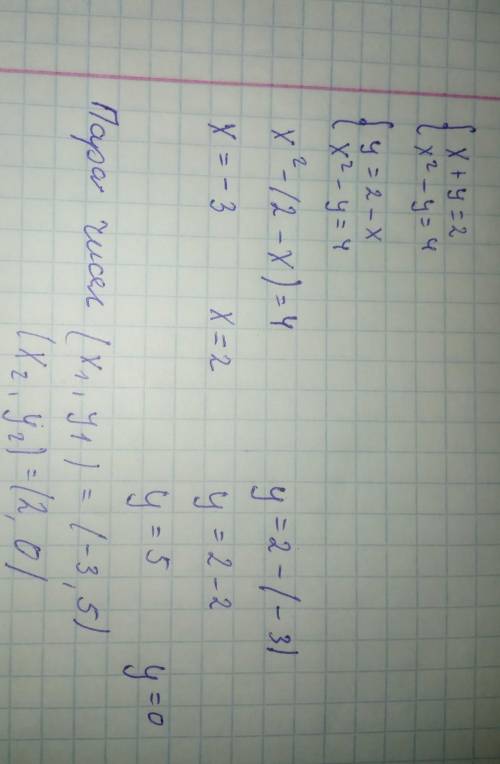 { x + y = 2
{ x² - y = 4
{ y = 2 - x
{ x² - y = 4
x² - (2 - x) = 4
x = -3 x = 2
y = 2 - (-3)
y = 2 - 2
y = 5 y = 0
Пара чисел (x1, y1) = (-3, 5)
(x2, y2) = (2, 0)